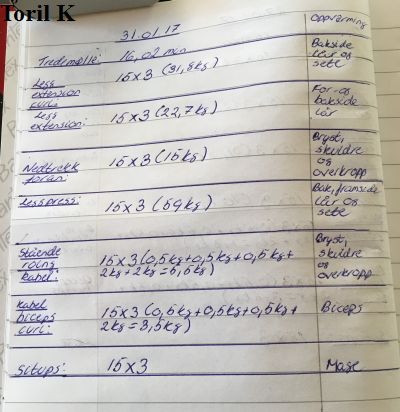 Toril K
31.01.17
oppvarming
Tredemølle: 16,02 min
Bakside
lår og
sete
Legg
extension
curl:
15x3 (31,8kg)
Legg
extension:
15x3 (22,7kg)
For- og
bakside
lår
Nedtrekk
foran:
15x3 (15kg)
Bryst,
skuldre
og
overkropp
Leggpress:
15x3 (59kg)
Bak, framside
lår og
sete
Stående
roing
kabel:
15x3 (0,5kg+0,5kg+0,5kg+
2kg+2kg=5,5kg)
Bryst,
skuldre
og
overkropp
Kabel
biceps
curl:
15x3 (0,5kg+0,5kg+0,5kg+
2kg=3,5kg)
Biceps
situps:
15x3
Mage